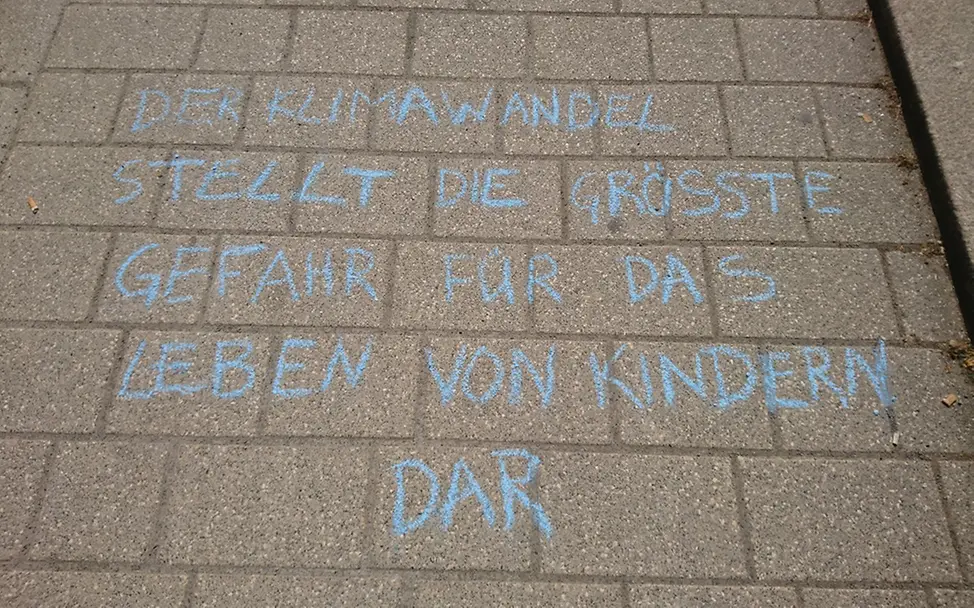 DER KLIMAWANDEL
STELLT DIE GRÖSSTE
GEFAHR FÜR DAS
LEBEN VON KINDERN
DAR